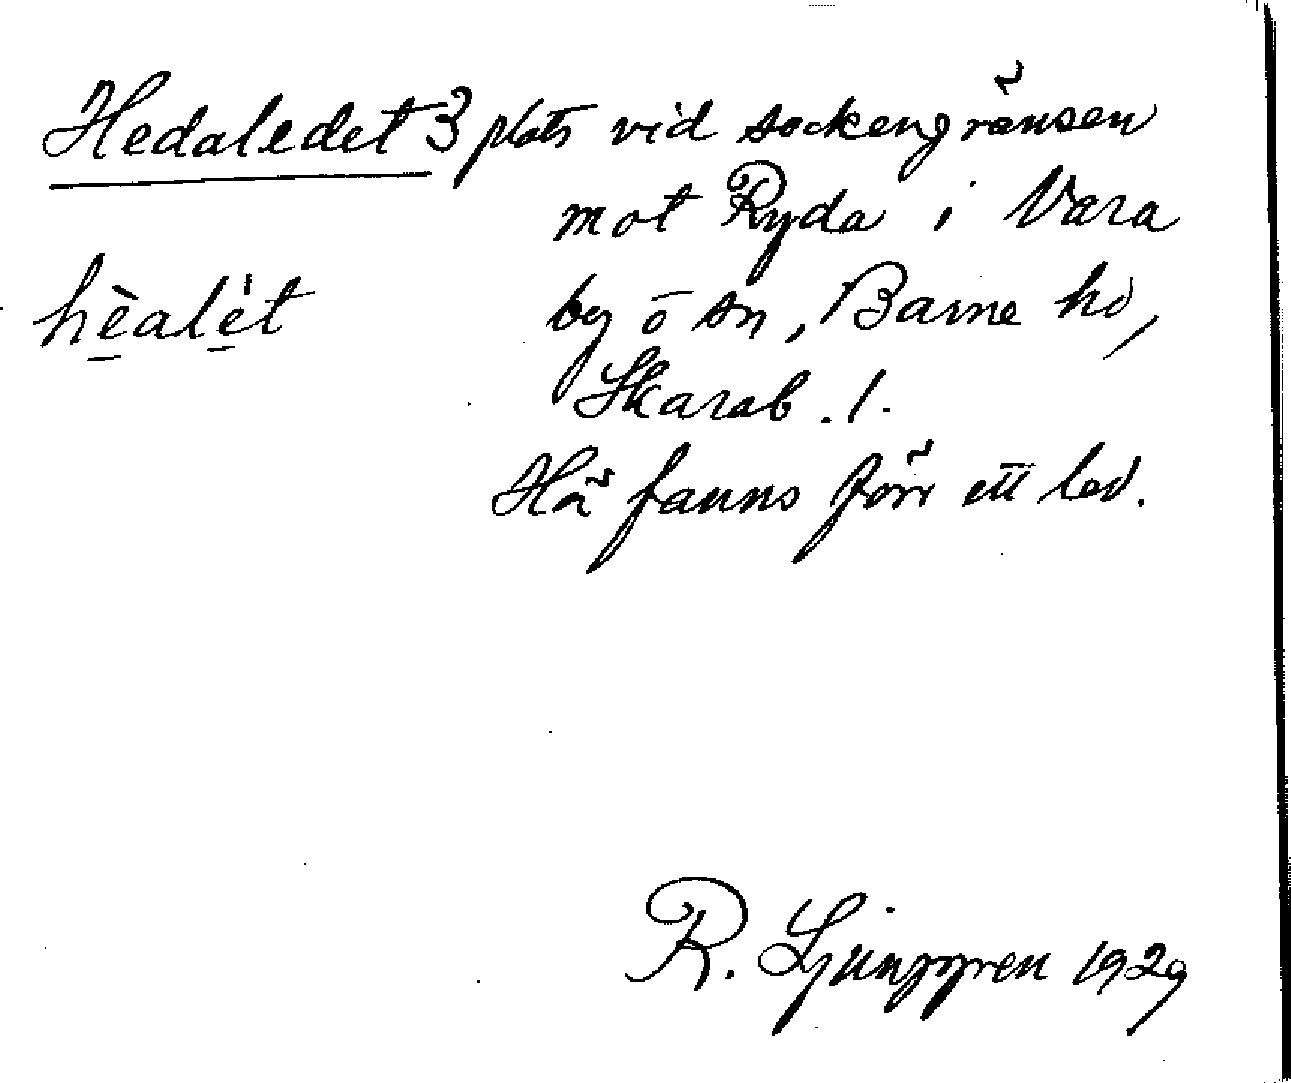 Hedaledet 3 plats vid sockengränsen
mot Ryda i Vara
hèalét by o sn, Barne hd,
Skarab. l.
Här fanns förr ett led.
R. Ljunggren 1929